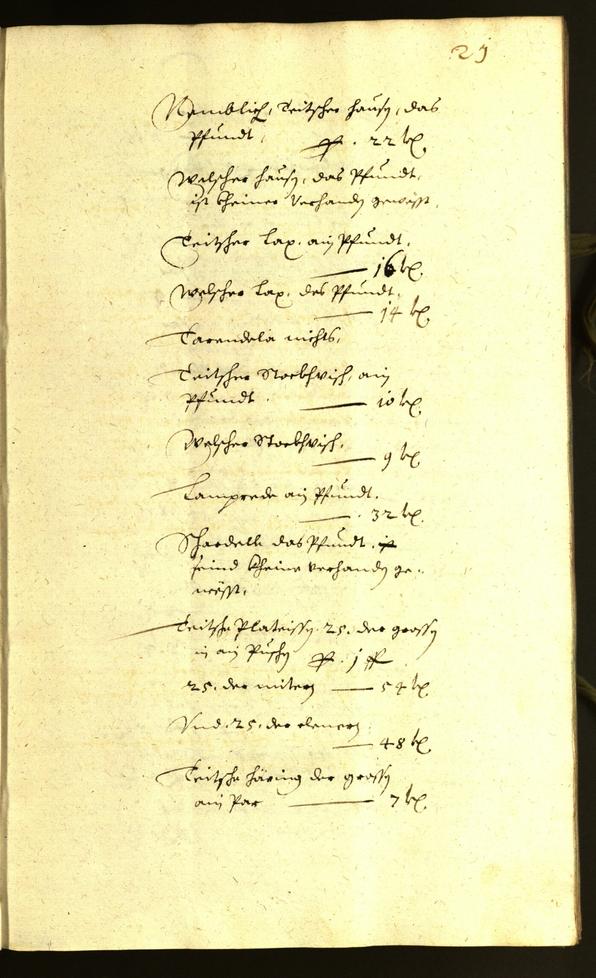 25
Nemblich, Teitscher hausn, das
Pfundt, pr. 22 kr.
Welscher hausn, das Pfundt,
ist kheiner verhandn gewest.
Teitscher Lax, ain Pfundt,
16 kr.
Welscher Lax, des Pfundt,
14 kr.
Tarendela nichts,
Teitscher Stockhvisch, ain
Pfundt 10 kr.
Welscher Stockhvisch,
9 kr.
Lamprede ain Pfundt.
32 kr.
Schardelle das Pfundt.
seind kheine verhandn ge-
wesst,
Teitsche Plateissn 25. der grossn
in ain Puschn pr. 1 fl
25. der mitern 54 kr.
Vnd 25. der clenern
48 kr.
Teitsche häring der grossn
ain Par 7 kr.